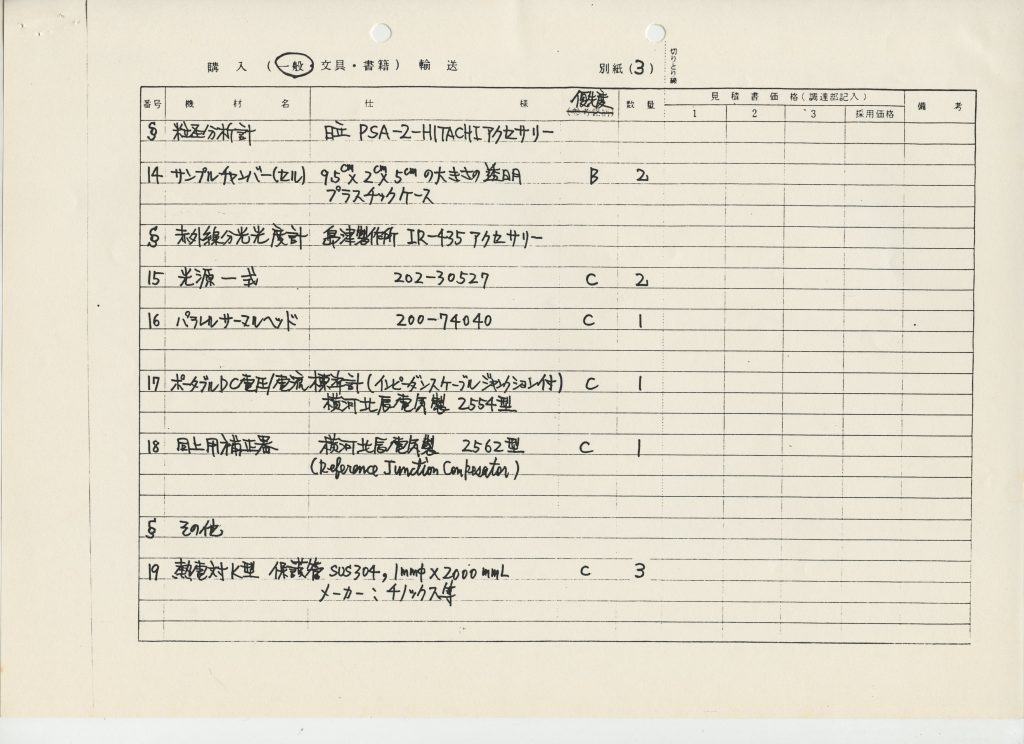 購 入 (一般・文具・書籍) 輸 送 別紙(3) 切りとり線
番号 機 材 名 仕 様 優先度 数 量 見 積 書 価 格 (調達部記入) 備 考
1 2 3 採用価格
§ 粒区分析計 日立 PSA-2-HITACHIアクセサリー
14 サンプルチャンバー(セル) 95cm×2cm×5cmの大きさの透明 B 2
プラスチックケース
§ 赤外線分光光度計 島津製作所 IR-435 アクセサリー
15 光源一式 202-30527 C 2
16 パラレルサーマルヘッド 200-74040 C 1
17 ポータブルDC電圧/電流標準計(インピーダンスケーブルジャンクション付) C 1
横河北辰電気製 2554型
18 同上用補正器 横河北辰電気製 2562型 C 1
(Reference Junction Conpesator)
§ その他
19 熱電対K型 保護管 SUS304, 1mmφ×2000mmL C 3
メーカー:チノックス等